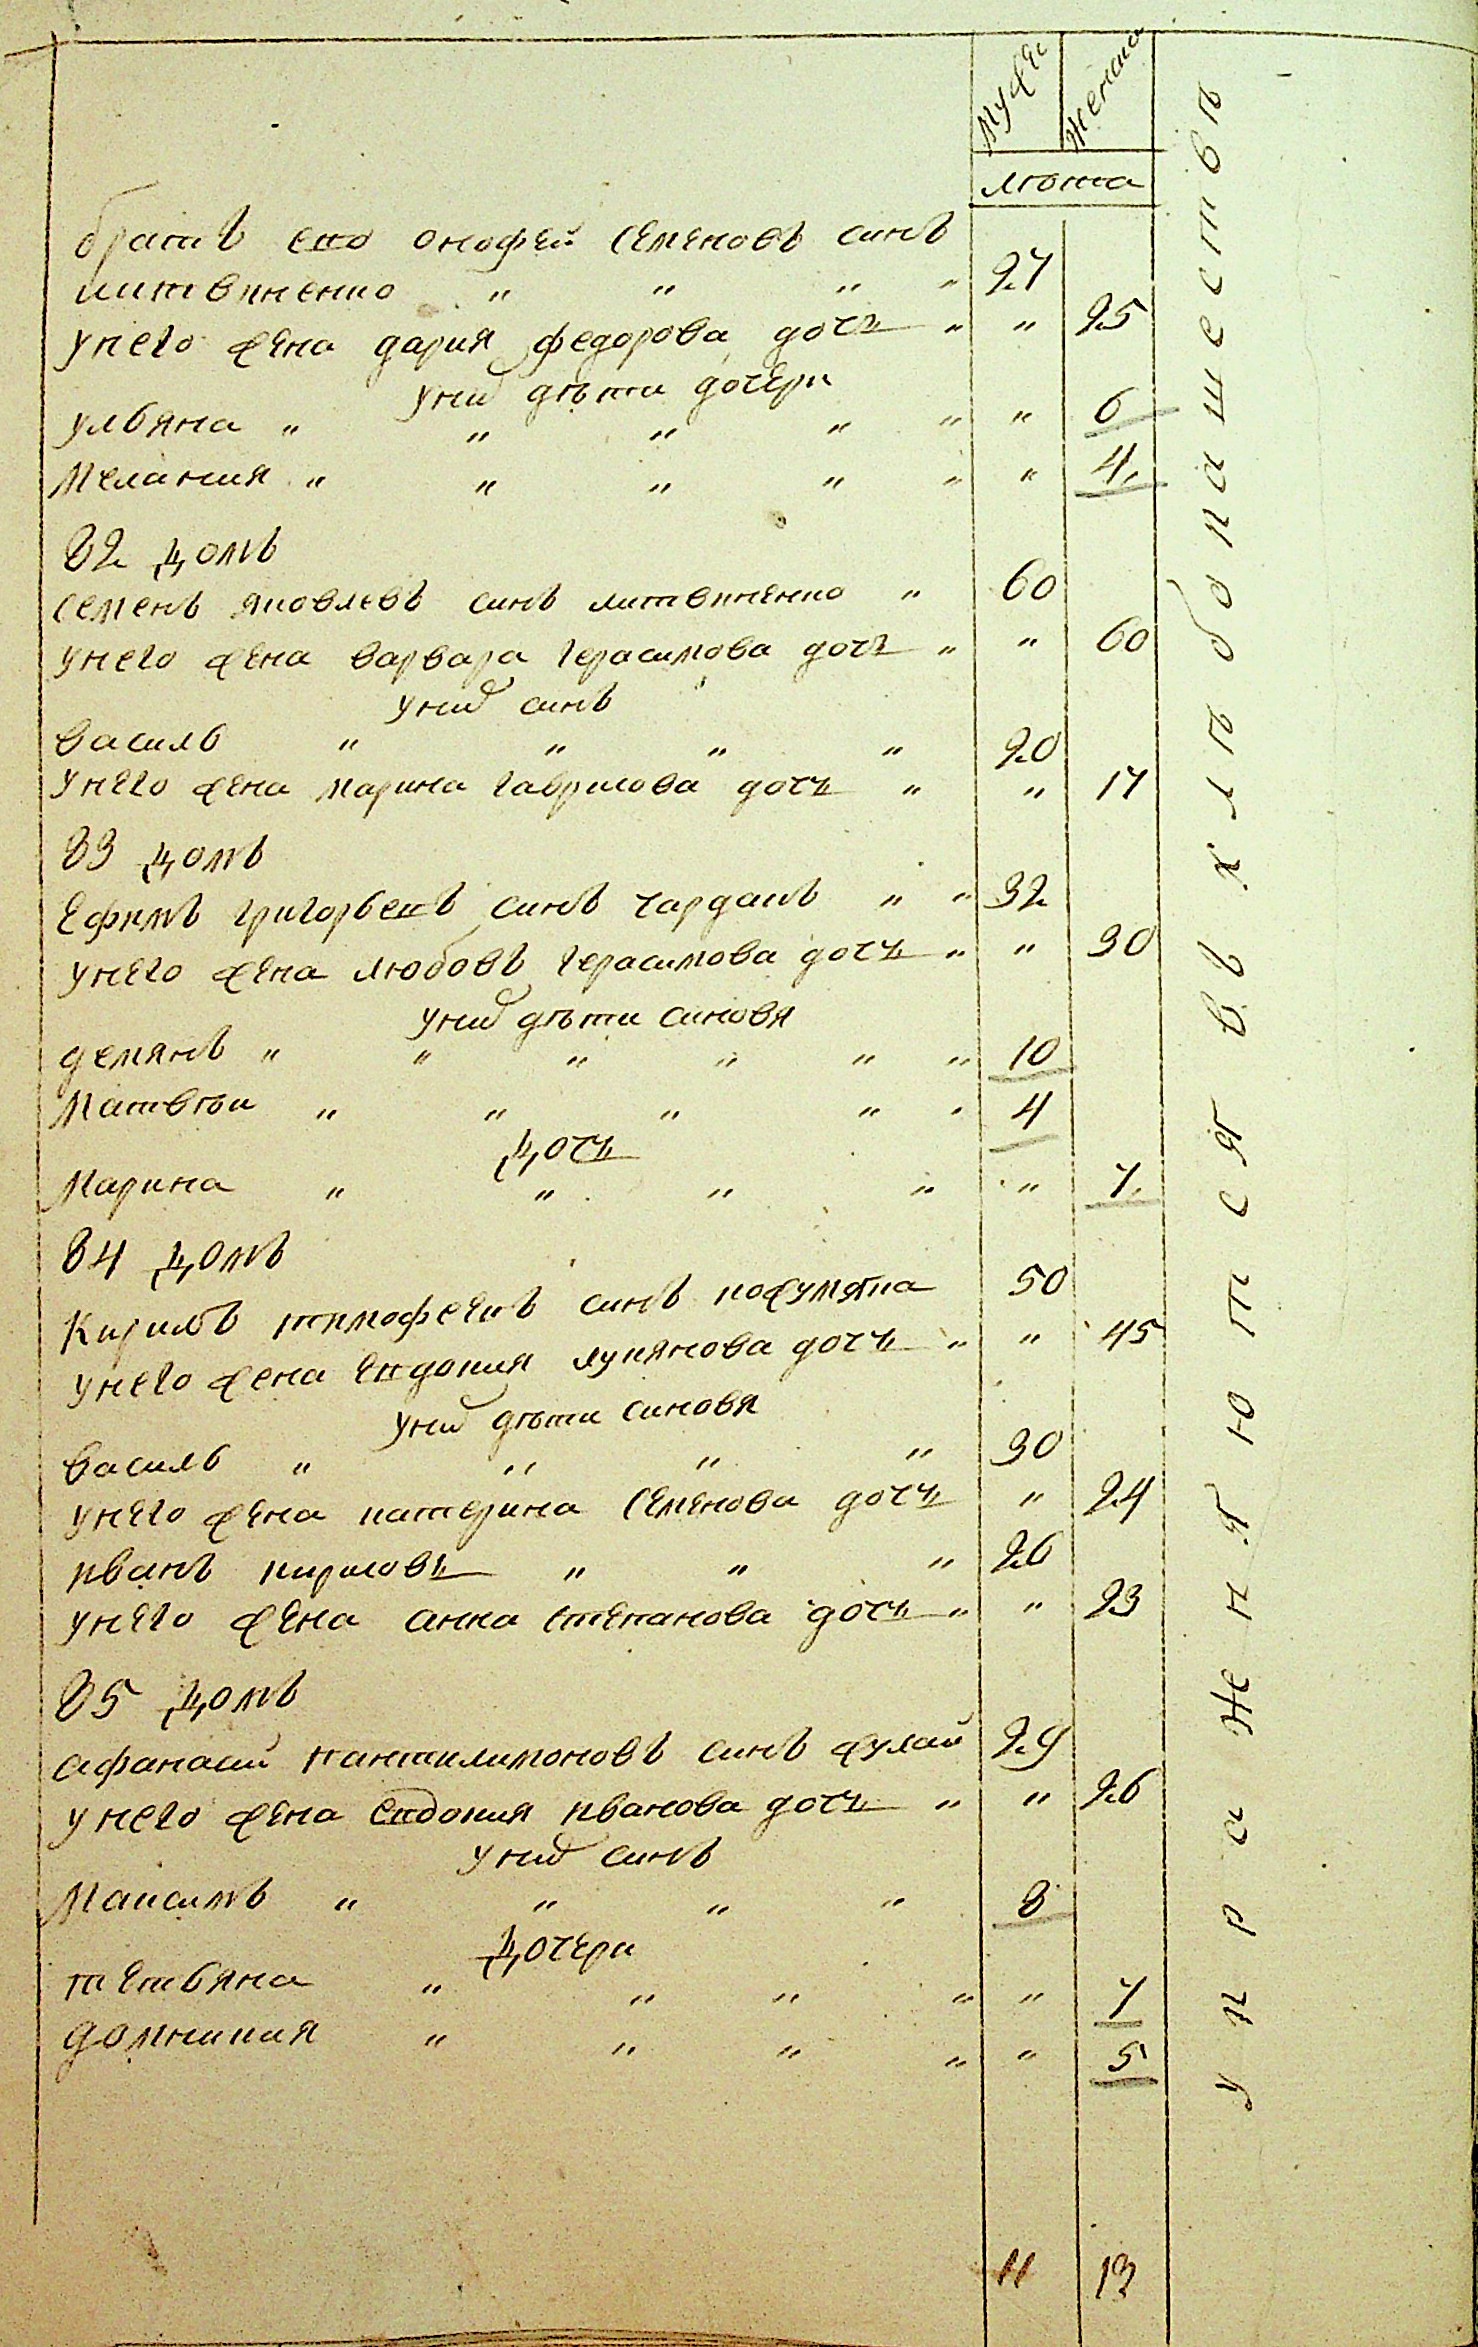 Муже
женска
лѣта
братъ его онофрей семеновъ синъ
литвиненко " " " " 27
унего жена дария федорова дочь " " 25
уних дѣти дочери
улвяна " " " " " " 6
Мелания " " " " " " 4
82 домъ
семенъ яковлевъ синъ литвиненко " 60
унего жена варвара герасимова дочь " " 60
уних синъ
василь " " " " 20
унего жена марина гаврилова дочь " " 17
83 домъ
Ефимъ григорьевъ синъ чардакъ " " 32
унего жена любовъ герасимова дочь " " 30
уних дѣти синовя
демянъ " " " " " " 10
Матвѣи " " " " " 4
дочь
Марина " " " " " 7
84 домъ
Кирилъ тимофеевъ синъ кожумяка 50
унего жена Евдокия лукянова дочь " " 45
уних дѣти синовя
василь " " " " 30
унего жена катерина семенова дочь " 24
иванъ кириловъ " " " 26
унего жена анна степанова дочь " " 23
85 домъ
афанасий пантилимоновъ синъ жулай 29
унего жена евдокия иванова дочь " " 26
уних синъ
Максимъ " " " " 8
дочери
тетьяна " " " " " 7
домникия " " " " " 5
11 13
упражняются въ хлѣбопашествѣ